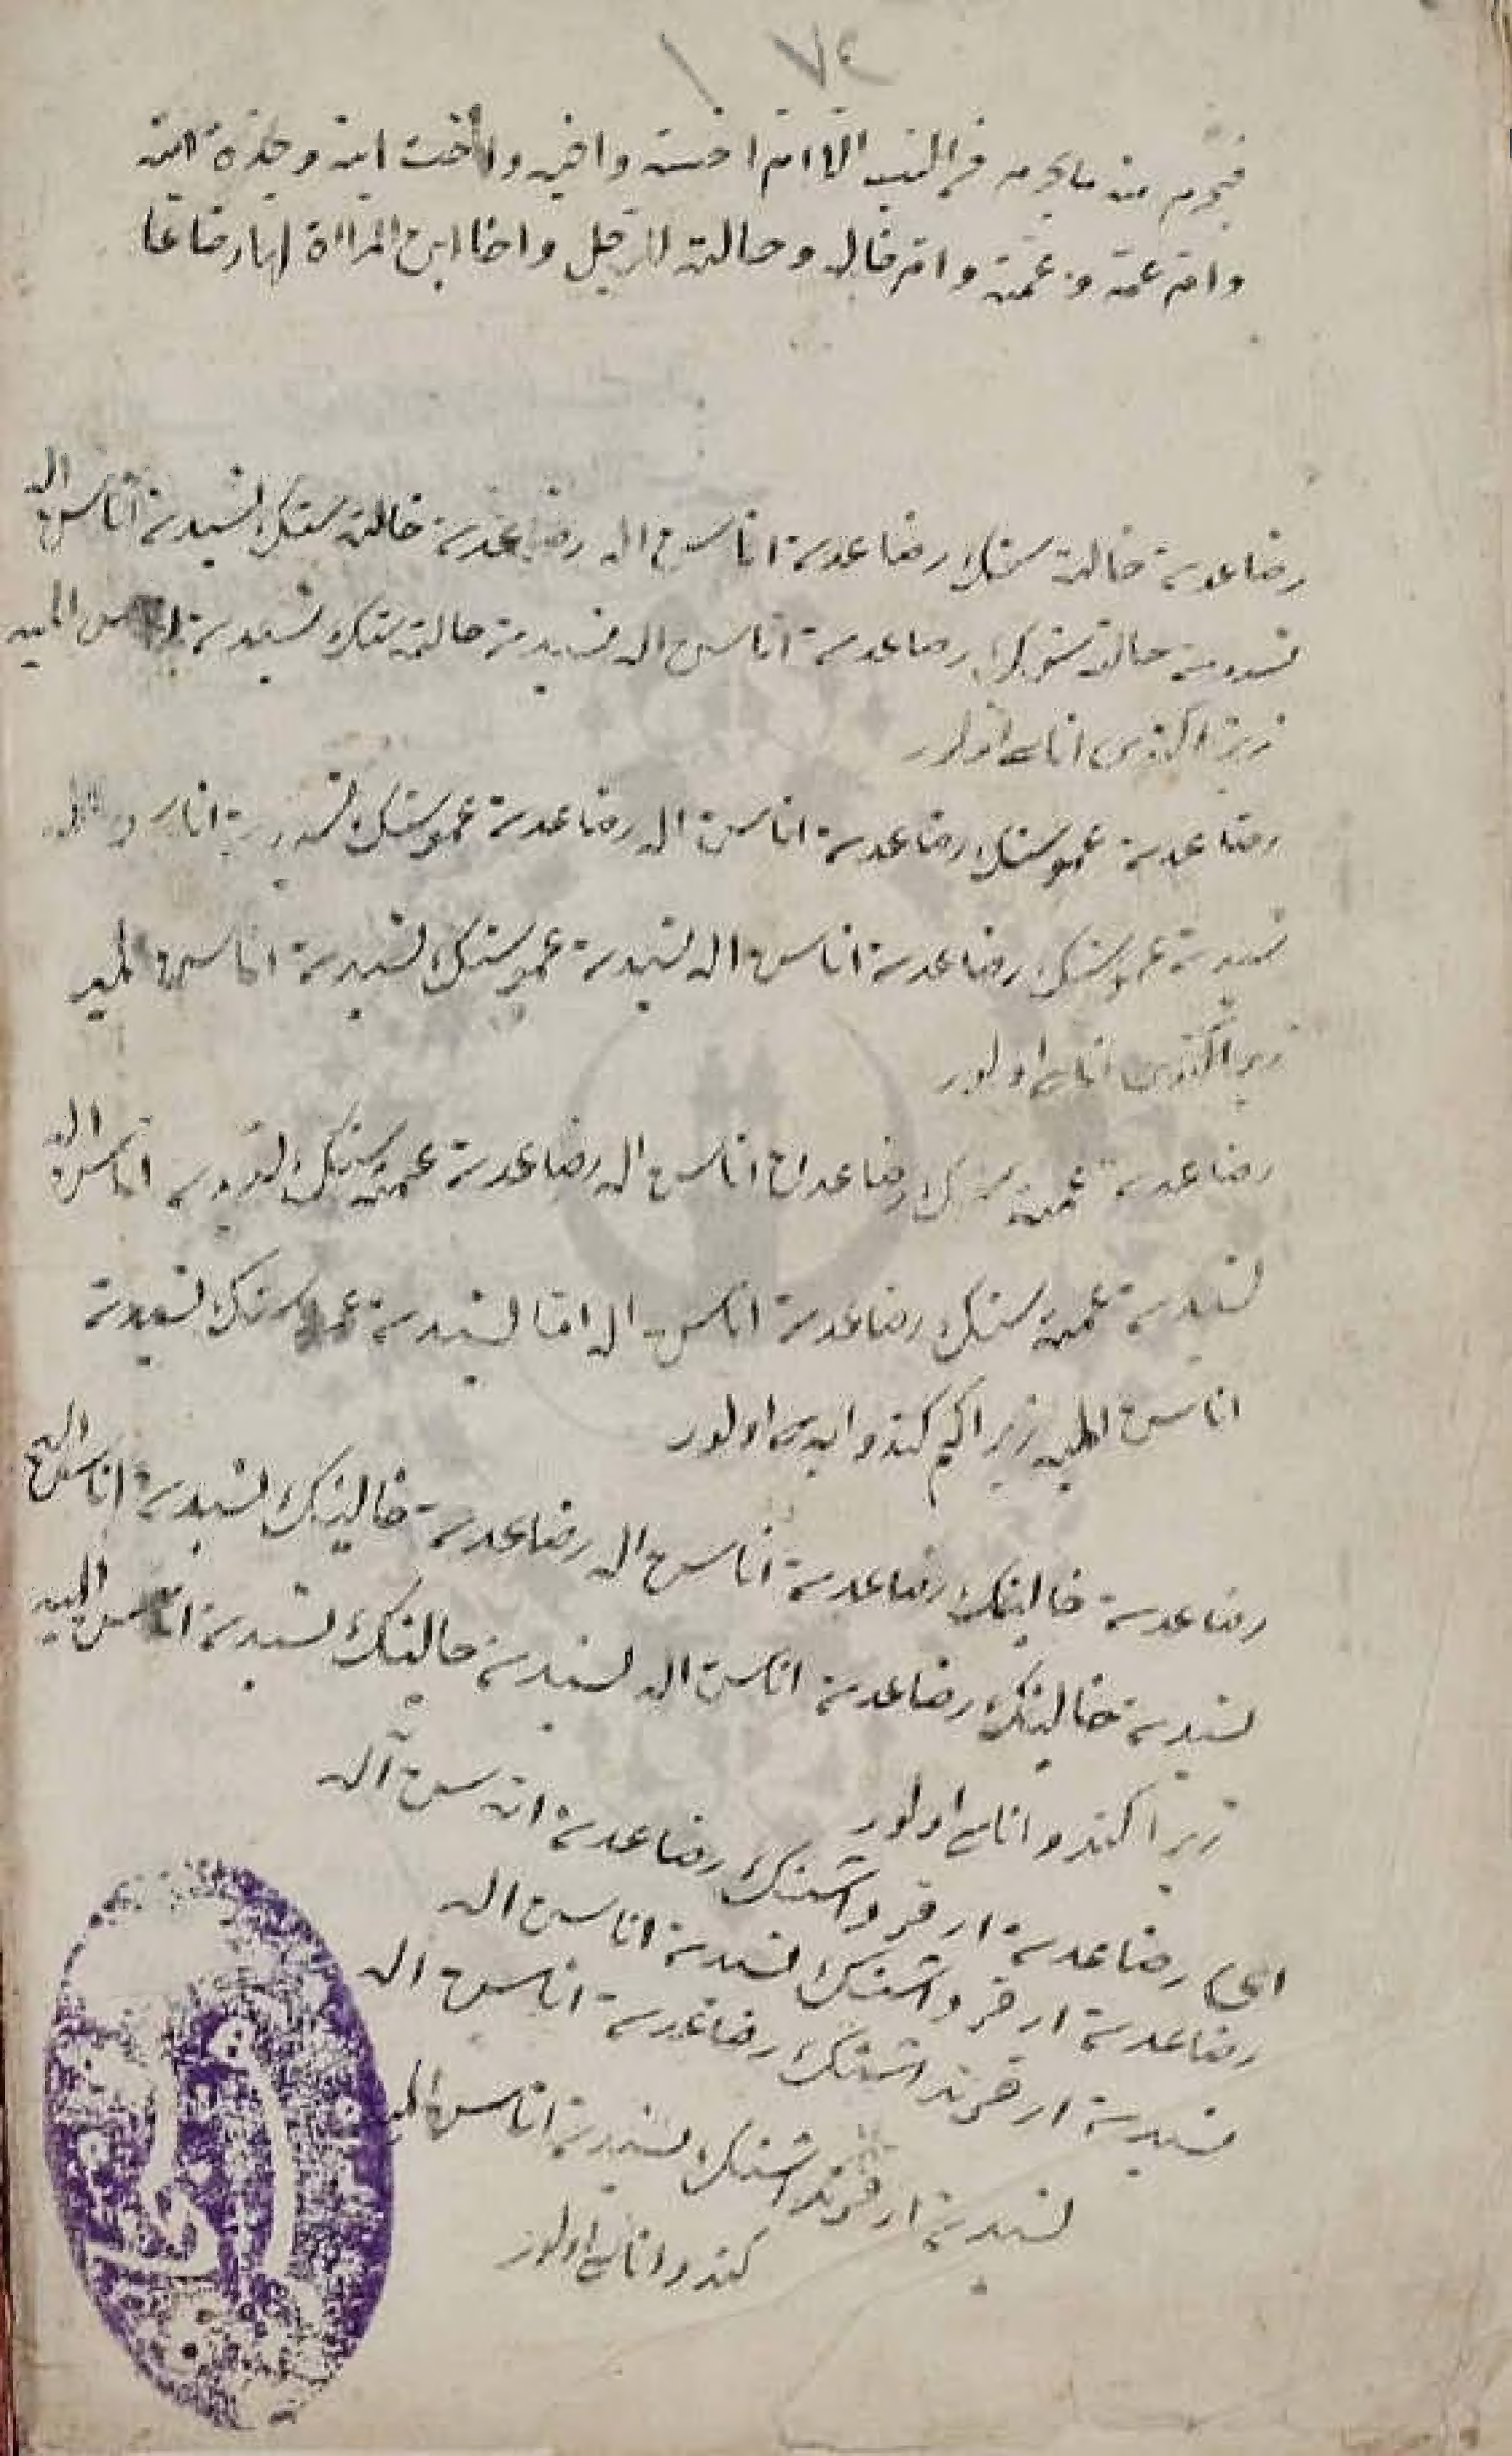 ٧٤
فيحرم منه ما يحرم من النسب الا ام اخته واخيه واخت ابنه وجدة ابنه
وام عمه وعمته وام خاله وخالته للرجل واخا ابن المرأة لها رضاعا
رضاعدن خالته سنك رضاعدن اناسن اله رضاعدن خالته سنك نسبدن اناسن اله
نسبدن خالته سنك رضاعدن اناسن اله نسبدن خالته سنك نسبدن المیه
زیرا کندی اناسی اولور
رضاعدن عموسنك رضاعدن اناسن اله رضاعدن عموسنك
نسبدن عموسنك رضاعدن اناسن اله نسبدن عموسنك نسبدن اناسن المیه
زیرا کندی اناسی اولور
رضاعدن عمه سنك رضاعدن اناسن اله رضاعدن عمه سنك نسبدن اناسن اله
نسبدن عمه سنك رضاعدن اناسن اله اما نسبدن عمه سنك نسبدن
اناسن المیه زیرا کندو اولور
رضاعدن خالینك رضاعدن اناسن اله رضاعدن خالینك نسبدن اناسن اله
نسبدن خالینك رضاعدن اناسن اله نسبدن خالینك نسبدن اناسن المیه
زیرا کندو اناسی اولور
رضاعدن ار قرداشنك رضاعدن اناسن اله
رضاعدن ار قرداشنك نسبدن اناسن اله
نسبدن ار قرنداشنك رضاعدن اناسن اله
نسبدن ار قرنداشنك نسبدن اناسن
کندو اناسی اولور